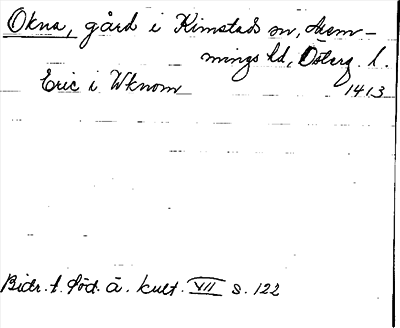 Okna, gård i Kimstads sn, Mem-
mings hd, Österg. l.
Eric i Wknom 1413
Bidr. t. Söd. Ä. kult. VII s. 122